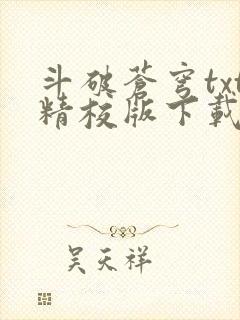 斗破蒼穹txt
精校版下載
吴天祥